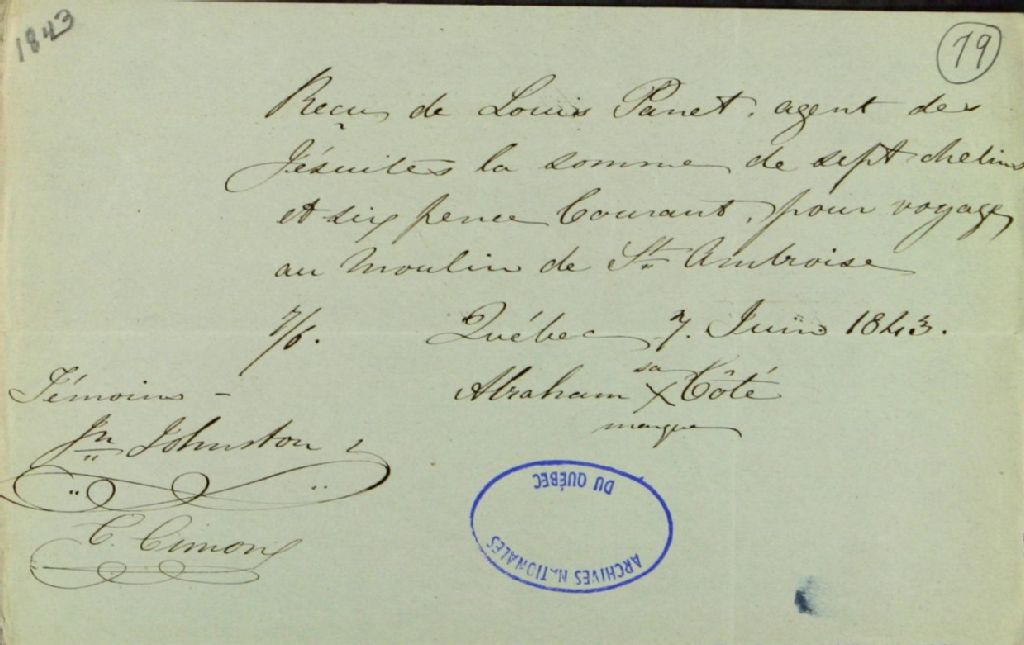 1843
19
Reçu de Louis Panet, agent des
Jésuites la somme de sept chelins
et six pence Courant, pour voyage
au Moulin de St. Ambroise
7/6. Québec 7. Juin 1843.
Témoins - Abraham sa X Côté
marque
Jn Johnston
C. Cimon
ARCHIVES NATIONALES
DU QUÉBEC